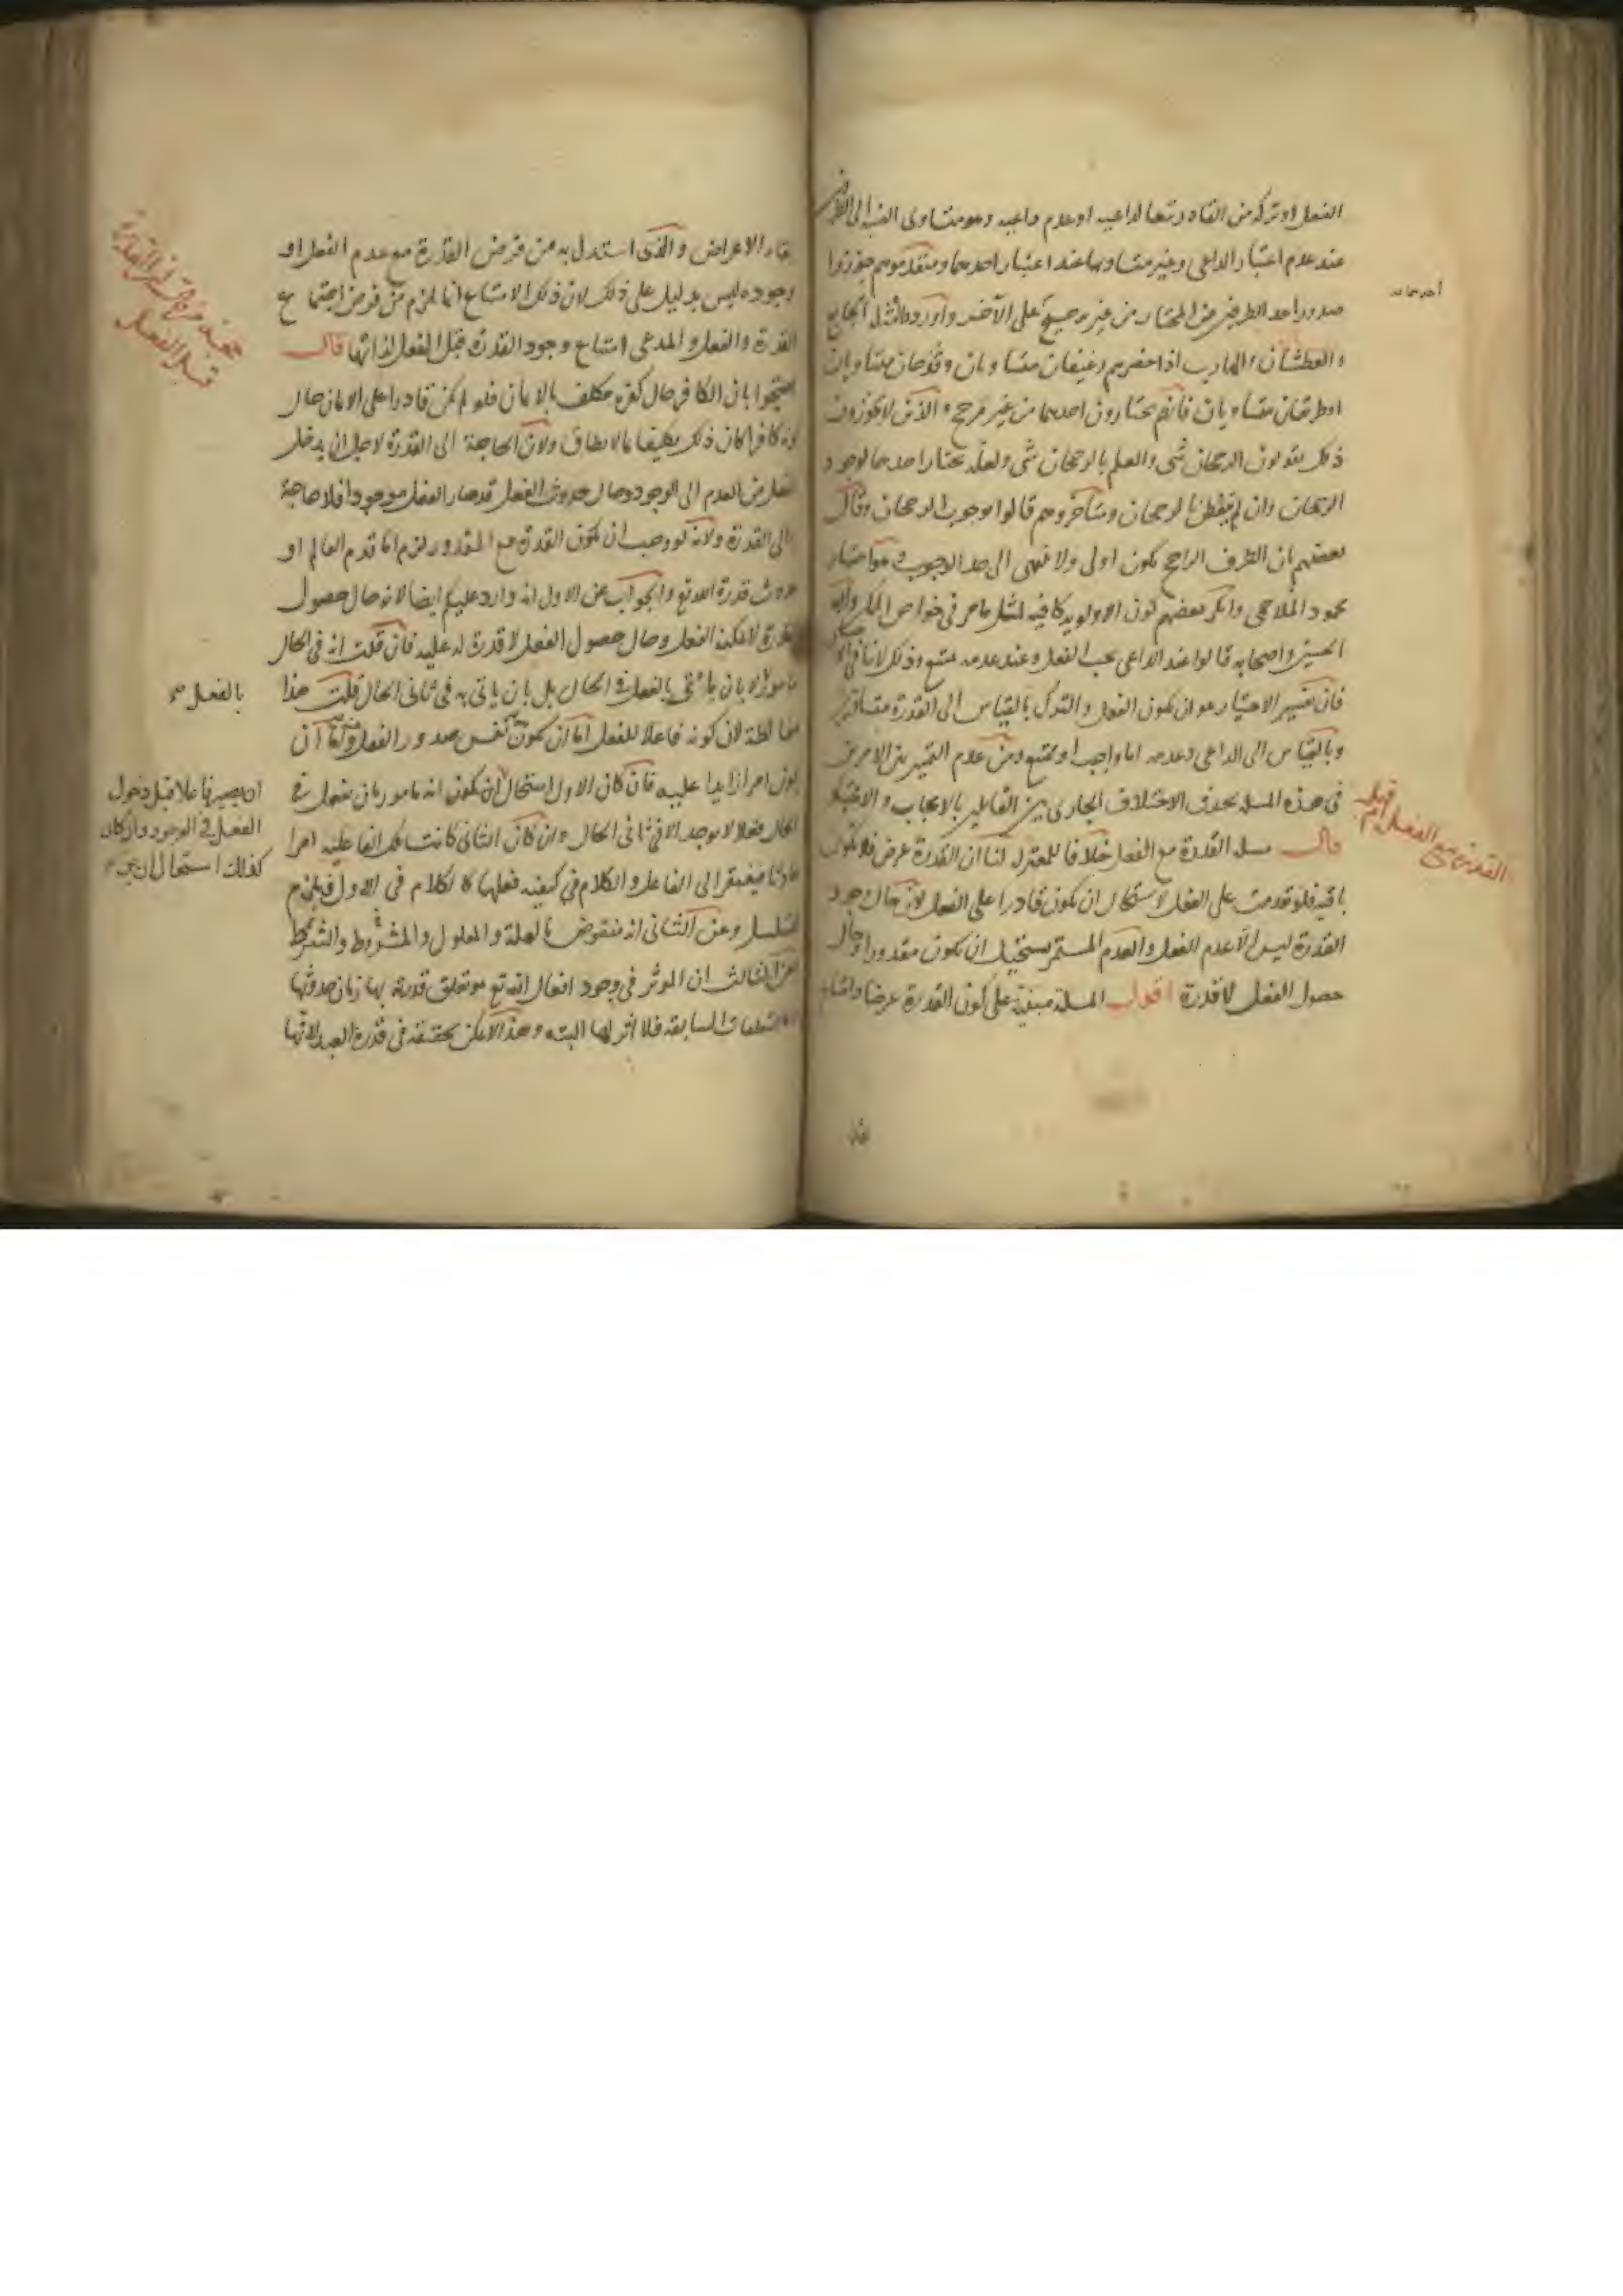 الفعل او تركه من القادر تبعا لداعيه او عدم داعيه وهو متساوى النسبة الى الطرفين
عند عدم اعتبار الداعى وغير متساو بها عند اعتبار احدهما ومتقدموهم جوزوا
صدور احد الطرفين عن المختار من غير ترجيح على الآخر واوردوا مثل الجايع
والعطشان والهارب اذا حضرهم رغيفان متساويان وقدحان متساويان
او طريقان متساويان فانهم يختارون احدهما من غير مرجح والذين لا يجوزون
ذلك يقولون الرجحان شى والعلم بالرجحان شى ولعله يختار احدهما لوجود
الرجحان وان لم يتفطن بالرجحان ومتأخروهم قالوا بوجوب الرجحان وقال
بعضهم بان الطرف الراجح يكون اولى ولا ينتهى الى حد الوجوب وهو اختيار
محمود الملاحمى وانكر بعضهم كون الاولوية كافية لمثل ما مر فى خواص الممكن وابو
الحسين واصحابه قالوا عند الداعى يجب الفعل وعند عدمه يمتنع وذلك لا ينافى
فان تفسير الاختيار هو ان يكون الفعل والترك بالقياس الى القدرة متساويين
وبالقياس الى الداعى وعدمه اما واجب او ممتنع ومن عدم التمييز بين الامرين
فى هذه المسلة يحدث الاختلاف الجارى بين القايلين بالايجاب والاختيار
قال مسلة القدرة مع الفعل خلافا للمعتزلة لنا ان القدرة عرض فلا تكون
باقية فلو تقدمت على الفعل لاستحال ان يكون قادرا على الفعل لان حال وجود
القدرة ليس الا عدم الفعل والعدم المستمر يستحيل ان يكون مقدورا وحال
حصول الفعل لا قدرة اقول المسلة مبنية على كون القدرة عرضا وامتناع
القدرة مع الفعل ام قبله
بقاء الاعراض والذى استدل به من فرض القدرة مع عدم الفعل او
وجوده ليس بدليل على ذلك لان ذلك الامتناع انما لزم من فرض اجتماع
القدرة والفعل والمدعى امتناع وجود القدرة قبل الفعل لذاتها قال
احتجوا بان الكافر حال كفره مكلف بالايمان فلو لم يكن قادرا على الايمان حال
كونه كافرا كان ذلك تكليفا بما لا يطاق ولان الحاجة الى القدرة لاجل ان يدخل
الفعل من العدم الى الوجود وحال حدوث الفعل قد صار الفعل موجودا فلا حاجة
الى القدرة ولانه لو وجب ان تكون القدرة مع المقدور لزم اما قدم العالم او
حدوث قدرة الله تع والجواب عن الاول انه وارد عليكم ايضا لانه حال حصول
القدرة لا يمكنه الفعل وحال حصول الفعل لا قدرة له عليه فان قلت انه فى الحال
مامور لا بان يأتى بالفعل فى الحال بل بان ياتى به فى ثانى الحال قلت هذا
مغالطة لان كونه فاعلا للفعل اما ان يكون نفس صدور الفعل واما ان
يكون امرا زايدا عليه فان كان الاول استحال ان يكون انه مامور بان يفعل فى
الحال فعلا لا يوجد الا فى ثانى الحال وان كان الثانى كانت تلك الفاعلية امرا
حادثا فيفتقر الى الفاعل والكلام فى كيفية فعلها كالكلام فى الاول فيلزم
التسلسل وعن الثانى انه منقوض بالعلة والمعلول والمشروط والشرط
وعن الثالث ان الموثر فى وجود افعال الله تع هو تعلق قدرته بها زمان حدوثها
التعلقات السابقة فلا اثر لها البتة وهذا لا يمكن تحققه فى قدرة العبد لانها
قبل الفعل
بالفعل
ان يصير فاعلا قبل دخول
الفعل فى الوجود واذا كان
كذلك استحال ان